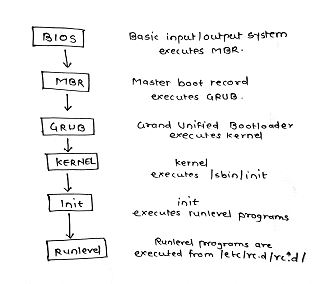 BIOS
Basic input/output system
executes MBR.
MBR
Master boot record
executes GRUB.
GRUB
Grand Unified Bootloader
executes kernel
KERNEL
kernel
executes /sbin/init
Init
init
executes runlevel programs
Runlevel
Runlevel programs are
executed from /etc/rc.d/rc*.d/